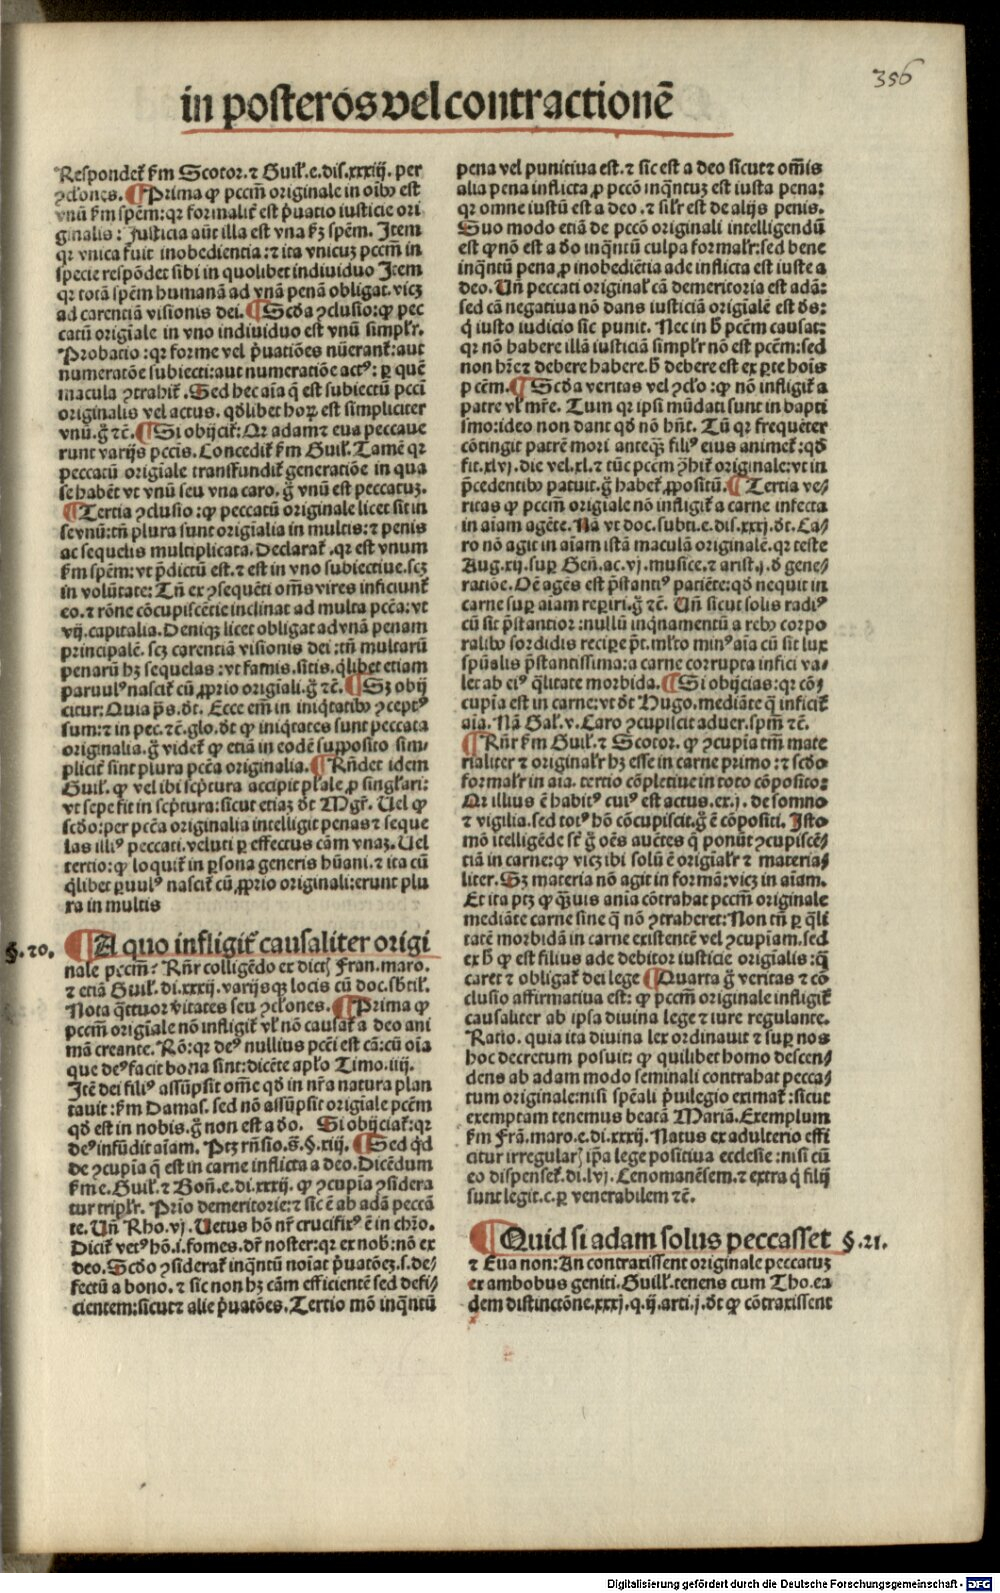 356
in posteros vel contractionē
Respondet᷑ ẜm Scotor. ⁊ Guil̛. e. dis. xxxiij. per
ꝯcl̛ones. ¶ Prima ꝙ pccm̄ originale in oībꝰ est
vnū ẜm spēm: qr formalit᷑ est p̄uatio iusticie ori
ginalis: Justicia aūt illa est vna ẜꝫ spēm. Item
qr vnica fuit inobedientia: ⁊ ita vnicuꝫ pccm̄ in
specie respōdet sibi in quolibet indiuiduo Item
qr totā spēm humanā ad vnā penā obligat. vicꝫ
ad carentiā visionis dei. ¶ Scd̛a ꝯclusio: ꝙ pec
catū origīale in vno indiuiduo est vnū simpl̛r.
Probatio: qr forme vel p̄uatiōes nūerant᷑: aut
numeratōe subiecti: aut numeratiōe actꝰ: ꝑ quē
macula ꝯtrahit᷑. Sed hec aīa q̄ est subiectū pccī
originalis vel actus. qd̛libet hoꝝ est simpliciter
vnū. g̊ ⁊c̄. ¶ Si obijcit᷑: Qr adam ⁊ eua peccaue
runt varijs pcc̄is. Concedit᷑ ẜm Guil̛. Tamē qr
peccatū origīale transfundit᷑ generatiōe in qua
se habēt vt vnū seu vna caro. g̊ vnū est peccatuꝫ.
¶ Tertia ꝯclusio: ꝙ peccatū originale licet sit in
se vnū: tn̄ plura sunt origīalia in multis: ⁊ penis
ac sequelis multiplicata. Declarat᷑. qr est vnum
ẜm spēm: vt p̄dictū est. ⁊ est in vno subiectiue. scꝫ
in volūtate: Tn̄ ex ꝯsequēti om̄s vires inficiunt᷑
eo. ⁊ rōne cōcupiscētie inclinat ad multa pcc̄a: vt
vij. capitalia. Deniqꝫ licet obligat ad vnā penam
principalē. scꝫ carentiā visionis dei: tn̄ multarū
penarū hꝫ sequelas: vt famis. sitis. q̄libet etiam
paruulꝰ nascit᷑ cū ꝓprio origīali. g̊ ⁊c̄. ¶ Sꝫ obij
citur: Quia p̄s. dt̄. Ecce em̄ in iniq̄tatibꝰ ꝯceptꝰ
sum: ⁊ in pec. ⁊c̄. glo. dt̄ ꝙ iniq̄tates sunt peccata
originalia. g̊ videt᷑ ꝙ etiā in eodē supposito sim-
plicit᷑ sint plura pcc̄a originalia. ¶ Rn̄det idem
Guil̛. ꝙ vel ibi sc̄ptura accipit pl̛ale ꝓ singl̛ari:
vt sepe fit in sc̄ptura: sicut etiaꝫ dt̄ Mgr̄. Uel ꝙ
scd̛o: per pcc̄a originalia intelligit penas ⁊ seque
las illiꝰ peccati. veluti ꝑ effectus cām vnaꝫ. Uel
tertio: ꝙ loquit᷑ in ꝑsona generis hūani. ⁊ ita cū
q̄libet ꝑuulꝰ nascit᷑ cū ꝓprio originali: erunt plu
ra in multis
§. 20. ¶ A quo infligit᷑ causaliter origi
nale pccm̄? Rn̄r colligēdo ex dict̄ Fran. maro.
⁊ etiā Guil̛. di. xxxij. varijsqꝫ locis cū doc. sb̄til̛.
Nota q̄ttuor v̄itates seu ꝯcl̛ones. ¶ Prima ꝙ
pccm̄ origīale nō infligit᷑ vl̛ nō causat᷑ a deo ani
mā creante. Rō: qr deꝰ nullius pcc̄i est cā: cū oīa
que deꝰ facit bona sint: dicēte apl̛o Timo. iiij.
Itē dei filiꝰ assūpsit om̄e qd̛ in nr̄a natura plan
tauit: ẜm Damas. sed nō assūpsit origīale pccm̄.
qd̛ est in nobis. g̊ non est a d̛o. Si obijciat᷑: qr
deꝰ infūdit aīam. Ptꝫ rn̄sio. s̄. §. xiij. ¶ Sed q̄d
de ꝯcupīa q̄ est in carne inflicta a deo. Dicēdum
ẜm e. Guil̛. ⁊ Bon̄. e. di. xxxij. ꝙ ꝯcupīa ꝯsidera
tur tripl̛r. Prīo demeritorie: ⁊ sic ē ab adā peccā
te. Un̄ Rho. vj. Uetus hō nr̄ crucifixꝰ ē in chr̄o.
Dicit᷑ vetꝰ hō. i. fomes. dr̄ noster: qr ex nob̄: nō ex
deo. Scd̛o ꝯsiderat᷑ inq̄ntū noīat p̄uatōeꝫ. s. de-
fectū a bono. ⁊ sic non hꝫ cām efficientē sed defi-
cientem: sicut ⁊ alie p̄uatōes. Tertio mō inq̄ntū
pena vel punitiua est. ⁊ sic est a deo sicut ⁊ om̄is
alia pena inflicta ꝓ pccō inq̄ntuꝫ est iusta pena:
qr omne iustū est a deo. ⁊ sil̛r est de alijs penis.
Suo modo etiā de pccō originali intelligendū
est ꝙ nō est a d̛o inq̄ntū culpa formal̛r: sed bene
inq̄ntū pena ꝓ inobediētia ade inflicta est iuste a
deo. Un̄ peccati original̛ cā demeritoria est adā:
sed cā negatiua nō dans iusticiā origīalē est d̛s:
q̄ iusto iudicio sic punit. Nec in h̄ pccm̄ causat:
qr nō habere illā iusticiā simpl̛r nō est pccm̄: sed
non hr̄e ⁊ debere habere. h̄ debere est ex ꝑte hoīs
pccm̄. ¶ Scd̛a veritas vel ꝯcl̛o: ꝙ nō infligit᷑ a
patre vl̛ mr̄e. Tum qr ipsi mūdati sunt in bapti
smo: ideo non dant qd̛ nō hn̄t. Tū qr frequēter
cōtingit patrē mori anteqꝫ filiꝰ eius animet᷑: qd̛
fit. xlvj. die vel. xl. ⁊ tūc pccm̄ ꝯhit᷑ originale: vt in
p̄cedentibꝰ patuit. g̊ habet᷑ ꝓpositū. ¶ Tertia ve-
ritas ꝙ pccm̄ origīale nō infligit᷑ a carne infecta
in aīam agēte. Nā vt doc. subti. e. dis. xxxj. dt̄. Ca-
ro nō agit in aīam istā maculā originalē. qr teste
Aug. xij. sup Gen̄. ac. vj. musice. ⁊ arist. j. d̛ gene-
ratiōe. Oē agēs est p̄stantiꝰ patiēte: qd̛ nequit in
carne sup aīam reperiri. g̊ ⁊c̄. Un̄ sicut solis radiꝰ
cū sit p̄stantior: nullū inq̄namentū a rebꝰ corpo
ralibꝰ sordidis reciꝑe pt̄. ml̛to minꝰ aīa cū sit lux
spūalis p̄stantissima: a carne corrupta infici va-
let ab eiꝰ q̄litate morbida. ¶ Si obijcias: qr cō-
cupīa est in carne: vt dt̄ Hugo. mediāte q̄ inficit᷑
aīa. Nā Gal̛. v. Caro ꝯcupiscit aduer. spm̄ ⁊c̄.
¶ Rn̄r ẜm Guil̛. ⁊ Scotor. ꝙ ꝯcupīa tm̄ mate
rialiter ⁊ original̛r hꝫ esse in carne primo: ⁊ scd̛o
formal̛r in aīa. tertio cōpletiue in toto cōposito:
Qr illius ē habitꝰ cuiꝰ est actus. ex. j. de somno
⁊ vigilia. sed totꝰ hō cōcupiscit. g̊ ē cōpositi. Isto
mō itelligēde sr̄t g̊ oēs auc̄tes q̄ ponūt ꝯcupiscē-
tiā in carne: ꝙ vicꝫ ibi solū ē origīal̛r ⁊ materia-
liter. Sꝫ materia nō agit in formā: vicꝫ in aīam.
Et ita ptꝫ ꝙ q̄uis anīa cōtrahat pccm̄ originale
mediāte carne sine q̄ nō ꝯtraheret: Non tn̄ ꝑ q̄li
tatē morbidā in carne existentē vel ꝯcupīam. sed
ex h̄ ꝙ est filius ade debitor iusticie origīalis: q̄
caret ⁊ obligat᷑ dei lege ¶ Quarta g̊ veritas ⁊ cō
clusio affirmatiua est: ꝙ pccm̄ originale infligit᷑
causaliter ab ipsa diuina lege ⁊ iure regulante.
Ratio. quia ita diuina lex ordinauit ⁊ sup nos
hoc decretum posuit: ꝙ quilibet homo descen-
dens ab adam modo seminali contrahat pecca-
tum originale: nisi spēali p̄uilegio eximat᷑: sicut
exemptam tenemus beatā Mariā. Exemplum
ẜm Frā. maro. e. di. xxxij. Natus ex adulterio effi
citur irregular̄ ip̄a lege positiua ecclesie: nisi cū
eo dispenset᷑. di. lvj. Cenomanēsem. ⁊ extra q̄ filij
sunt legit. c. ꝑ venerabilem ⁊c̄.
¶ Quid si adam solus peccasset §. 21.
⁊ Eua non: An contraxissent originale peccatuꝫ
ex ambobus geniti. Guill̛. tenens cum Tho. ea
dem distinctōne. xxxj. q. ij. arti. j. dt̄ ꝙ cōtraxissent
Digitalisierung gefördert durch die Deutsche Forschungsgemeinschaft - DFG